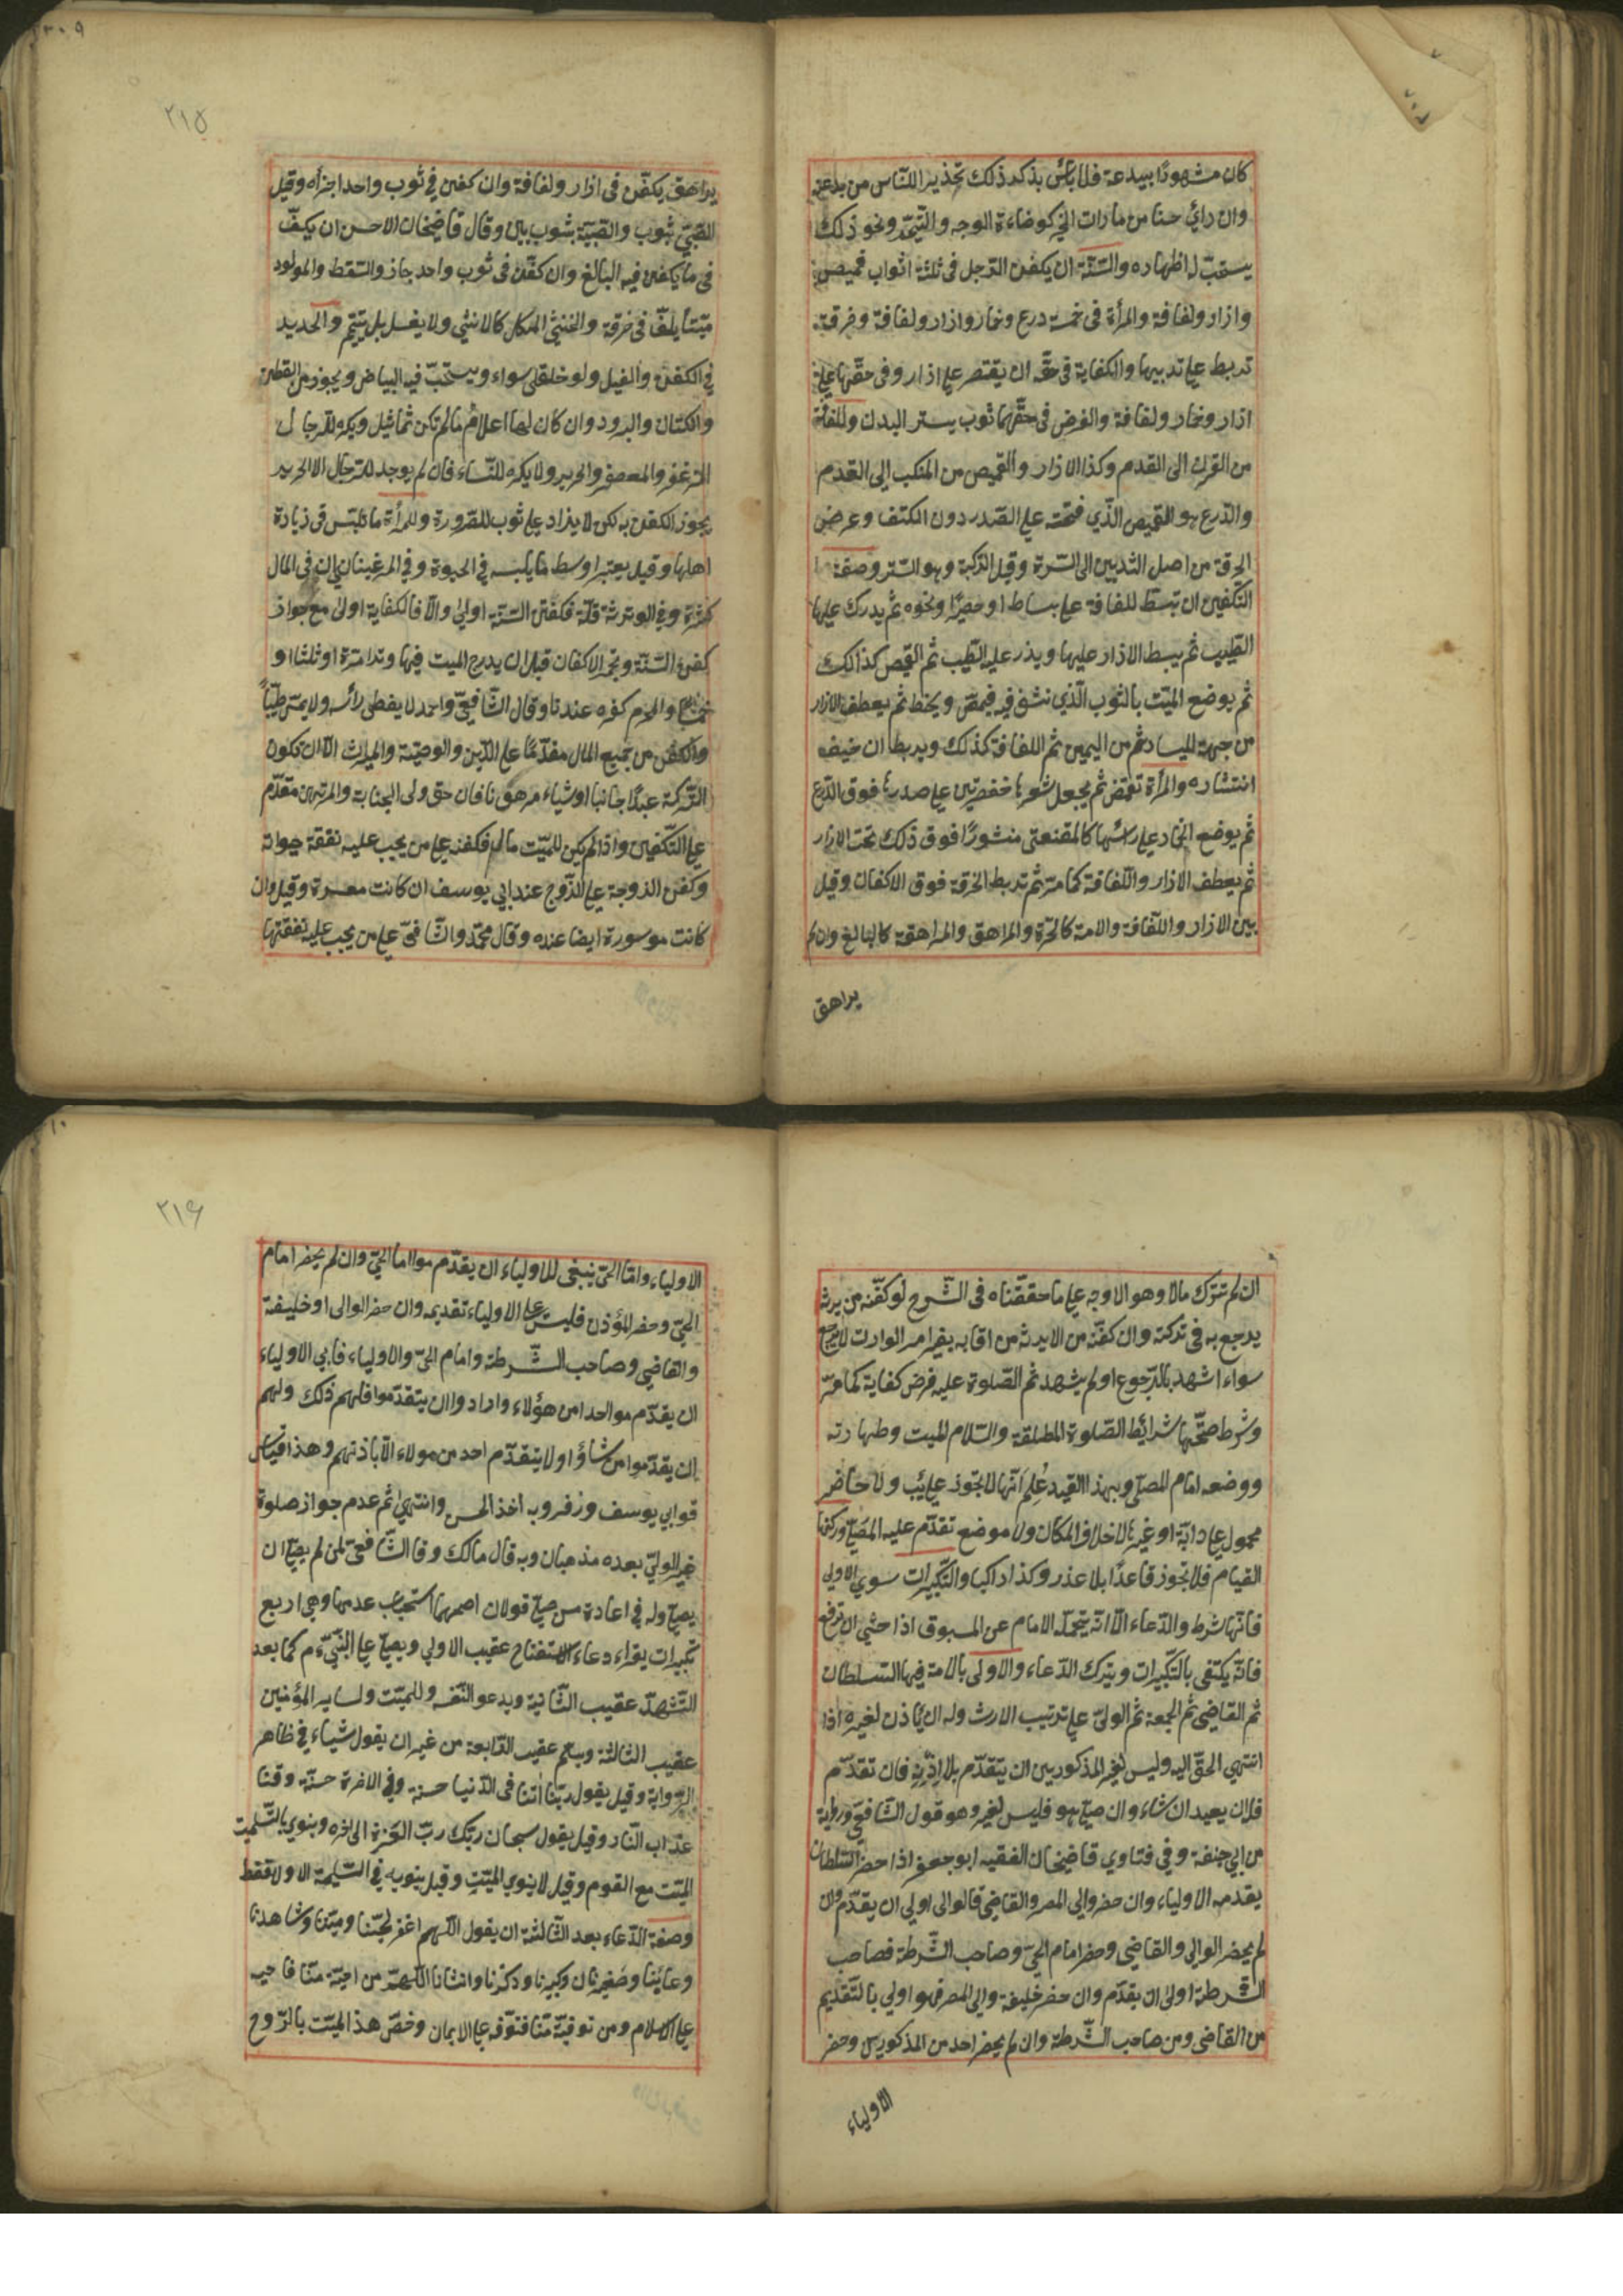 كان مشهودًا ببدعة فلا بأس بذكر ذلك تحذيرا للنّاس من بدعته
وان رائ حسنا من مارات الخير كوضاءة الوجه والتبسّم ونحو ذلك
يستحبّ له اظهاره والسّنّة ان يكفن الرّجل فى ثلثة اثواب قميص
وازار ولفافة والمرأة فى خمسة درع وخمار وازار ولفافة وخرقة
تربط على ثدييها والكفاية فى حقّه ان يقتصر على ازار وفى حقّها على
ازار وخمار ولفافة والفرض فى حقّهما ثوب يستر البدن واللفافة
من القرن الى القدم وكذا الازار والقميص من المنكب الى القدم
والدّرع هو القميص الذّي فتحته على الصّدر دون الكتف وعرض
الخرقة من اصل الثديين الى السّرة وقيل الرّكبة وهو السّتر وصفة
التّكفين ان تبسط للفافة على بساط او حصير او نحوه ثم يدرك عليها
الطّيب ثم يبسط الازار عليها ويذر عليه الطّيب ثم القميص كذالك
ثم يوضع الميّت بالثوب الّذي نشّف فيه فيقمّص ويحنّط ثم يعطف الازار
من جهة لليسار ثم من اليمين ثم اللفافة كذلك ويربط ان خيف
انتشاره والمرأة تقمّص ثم يجعل شعرها ضفيرتين على صدرها فوق الدّرع
ثم يوضع الخمار على رأسها كالمقنعة منشورًا فوق ذلك تحت الازار
ثم يعطف الازار واللّفافة كما مرّ ثم تربط الخرقة فوق الاكفان وقيل
بين الازار واللّفافة والامة كالحرّة والمراهق والمراهقة كالبالغ وان لم
يراهق
٢١٥
يراهق يكفّن فى ازار ولفافة وان كفن في ثوب واحد اجزأه وقيل
الصّبيّ بثوب والصّبيّة بثوبين وقال قاضيخان الاحسن ان يكفّن
فى ما يكفن فيه البالغ وان كفّن فى ثوب واحد جاز والسّقط والمولود
ميّتا يلفّ فى خرقة والخنثى المشكل كالانثى ولا يغسل بل ييمّم والجديد
في الكفن والغسيل ولو خلقا سواء ويستحبّ فيه البياض ويجوز من القطن
والكتان والبرود وان كان لها اعلام ما لم تكن تماثيل ويكره للرجال
المزعفر والمعصفر والحرير ولا يكره للنّساء فان لم يوجد للرّجال الا الحرير
يجوز الكفن به لكن لا يزاد على ثوب للضّرورة وللمرأة ما تلبس فى زيارة
اهلها وقيل يعتبر اوسط ما يلبسه في الحيوة وفي المرغيناني ان فى المال
كثرة وفي الورثة قلّة فكفن السّنّة اولى والّا فالكفاية اولى مع جواز
كفن السّنّة وتجمّر الاكفان قبل ان يدرج الميت فيها وترا مرّة او ثلثا او
خمسًا والمحرم كغيره عندنا وقال الشّافعيّ واحمد لا يغطى رأسه ولا يمسّ طيبًا
والكفن من جميع المال مقدّمًا على الدّين والوصيّة والميراث الّا ان تكون
التّركة عبدًا جانيا او شياء مرهونا فان حق ولى الجناية والمرتهن مقدّم
على التّكفين واذا لم يكن للميّت مال فكفنه على من يجب عليه نفقة حيوته
وكفن الزوجة على الزّوج عند ابي يوسف ان كانت معسرة وقيل وان
كانت موسورة ايضا عنده وقال محمّد والشّافعيّ على من يجب عليه نفقتها
ان لم تترك مالا وهو الاوجه على ما حققّناه فى الشّرح لو كفّنه من يرثه
يرجع به فى تركته وان كفّنه من لا يرثه من اقاربه بغير امر الوارث لا يرجع
سواء اشهد بالرّجوع او لم يشهد ثم الصّلوة عليه فرض كفاية كما مرّ
وشرط صحّتها شرائط الصّلوة المطلقة والسّلام للميت وطهارته
ووضعه امام المصلّي وبهذا القيد عُلِمَ انّها لا تجوز على غائب ولا حاضر
محمول على دابّة او غيرها لاخلاف المكان ولا موضع تقدّم عليه المصلّي وركنها
القيام فلا تجوز قاعدًا بلا عذر وكذا راكبا والتّكبيرات سوي الاولى
فانّها شرط والدّعاء الّا انّه يتحمّله الامام عن المسبوق اذا خشي ان ترفع
فانّه يكتفى بالتّكبيرات ويترك الدّعاء والاولى بالامامة فيها السّلطان
ثم القاضي ثم الجمعة ثم الولىّ على ترتيب الارث وله ان يأذن لغيره اذا
انتهي الحقّ اليه وليس لغير المذكورين ان يتقدّم بلا اِذْنِه فان تقدّم
فله ان يعيد ان شاء وان صلّى هو فليس لغيره وهو قول الشّافعيّ ورواية
من ابي حنفة وفي فتاوي قاضيخان الفقيه ابو جعفر اذا حضر السّلطان
يقدمه الاولياء وان حضر والى المصر والقاضي فالوالى اولى ان يقدّم وان
لم يحضر الوالي والقاضي وحضر امام الحيّ وصاحب الشّرطة فصاحب
الشّرطة اولى ان يقدّم وان حضر خليفة والي المصر فهو اولي بالتّقديم
من القاضي ومن صاحب الشّرطة وان لم يحضر احد من المذكورين وحضر
الاولياء
٢١٦
الاولياء وامّا الحيّ ينبغى للاولياء ان يقدّموا امام الحيّ وان لم يحضر امام
الحيّ وحضر المؤذن فليس على الاولياء تقديمه وان حضر الوالى او خليفة
والقاضي وصاحب الشّرطة وامام الحيّ والاولياء فابي الاولياء
ان يقدّموا احدا من هؤلاء وارادوا ان يتقدّموا فلهم ذلك ولهم
ان يقدّموا من شاؤا ولا يتقدّم احد من هولاء الّا باذنهم وهذا قياس
قول ابي يوسف وزفر وبه اخذ الحسن وانتهىٰ ثم عدم جواز صلوة
غير الوليّ بعده مذهبنا وبه قال مالك وقال الشّافعيّ لمن لم يصلّ ان
يصلّي وله في اعادة من صلّى قولان اصحهما استحباب عدمها وهي اربع
تكبيرات يقراء دعاء الاستفتاح عقيب الاولي ويصلّي على النّبيّ ءم كما بعد
التّشهدّ عقيب الثّانية ويدعو لنفسه وللميّت ولساير المؤمنين
عقيب الثالثة ويسلّم عقيب الرّابعة من غير ان يقول شياء في ظاهر
الرّواية وقيل يقول ربّنا اٰتنا فى الدّنيا حسنة وفي الاخرة حسنة وقنا
عذاب النّار وقيل يقول سبحان ربّك ربّ العزّة الى اخره وينوي بالتّسليمتين
الميّت مع القوم وقيل لا ينوي الميّت وقيل ينويه في التسليمة الاولى فقط
وصفة الدّعاء بعد الثّالثة ان يقول اللّهم اغفر لحيّنا وميّتنا وشاهدنا
وغائبنا وصغيرنا وكبيرنا وذكرنا وانثانا اللّهمّ من احيته منّا فاحيه
على الاسلام ومن توفيّته منّا فتوفّه على الايمان وخصّ هذا الميّت بالرّوح